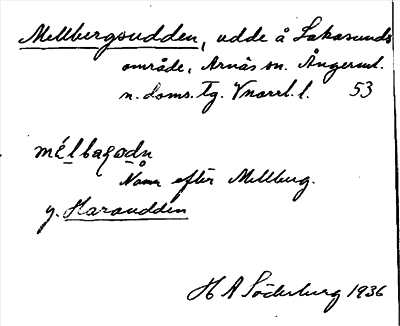 Mellbergsudden, udde å Lakasunds
område, Arnäs sn. Ångerml.
n. doms. Tg. Vnorrl. l. 53
Namn efter Mellberg.
y. Haraudden
H A Söderberg 1936